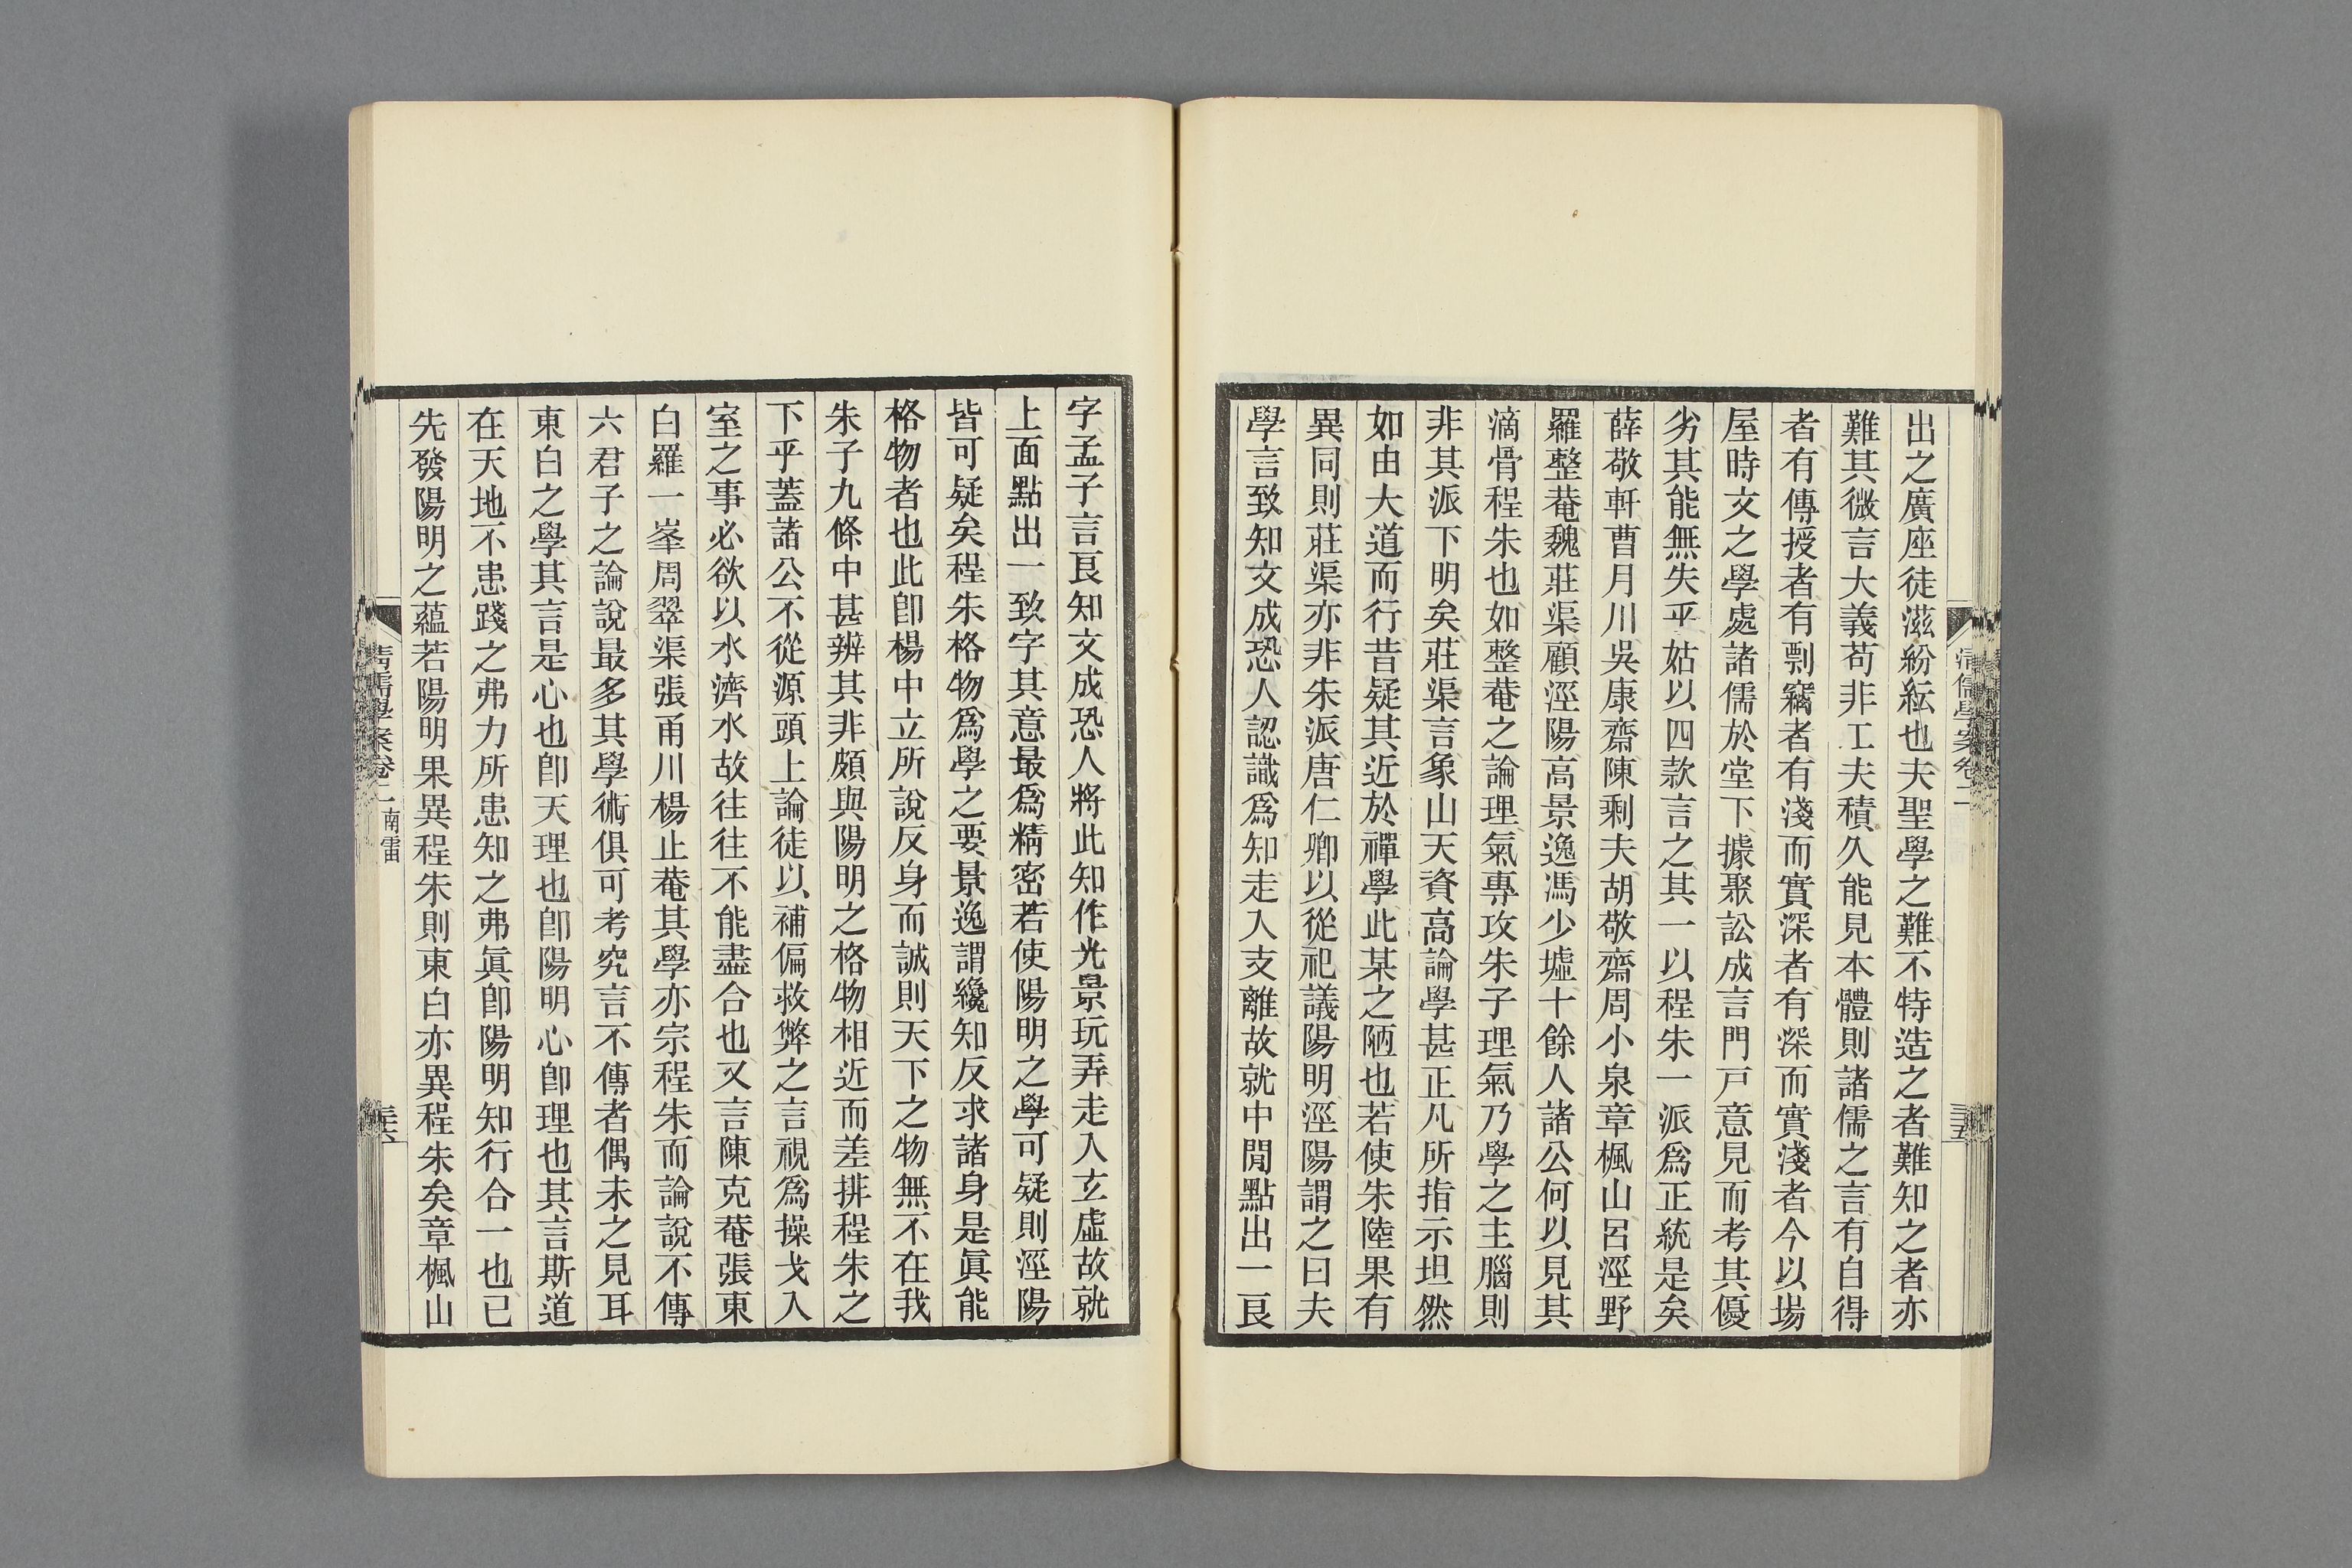 出之廣座徒滋紛紜也夫聖學之難不特造之者難知之者亦
難其微言大義苟非工夫積久能見本體則諸儒之言有自得
者有傳授者有剽竊者有淺而實深者有深而實淺者今以場
屋時文之學處諸儒於堂下據聚訟成言門戸意見而考其優
劣其能無失乎姑以四款言之其一以程朱一派爲正統是矣
薛敬軒曹月川吳康齋陳剩夫胡敬齋周小泉章楓山呂涇野
羅整菴魏莊渠顧涇陽高景逸馮少墟十餘人諸公何以見其
滴骨程朱也如整菴之論理氣專攻朱子理氣乃學之主腦則
非其派下明矣莊渠言象山天資高論學甚正凡所指示坦然
如由大道而行昔疑其近於禪學此某之陋也若使朱陸果有
異同則莊渠亦非朱派唐仁卿以從祀議陽明涇陽謂之曰夫
學言致知文成恐人認識爲知走入支離故就中閒點出一良
清儒學案卷二
三五
字孟子言良知文成恐人將此知作光景玩弄走入玄虛故就
上面點出一致字其意最爲精密若使陽明之學可疑則涇陽
皆可疑矣程朱格物爲學之要景逸謂纔知反求諸身是眞能
格物者也此卽楊中立所說反身而誠則天下之物無不在我
朱子九條中甚辨其非頗與陽明之格物相近而差排程朱之
下乎蓋諸公不從源頭上論徒以補偏救弊之言視爲操戈入
室之事必欲以水濟水故往往不能盡合也又言陳克菴張東
白羅一峯周翠渠張甬川楊止菴其學亦宗程朱而論說不傳
六君子之論說最多其學術俱可考究言不傳者偶未之見耳
東白之學其言是心也卽天理也卽陽明心卽理也其言斯道
在天地不患踐之弗力所患知之弗眞卽陽明知行合一也已
先發陽明之蘊若陽明果異程朱則東白亦異程朱矣章楓山
清儒學案卷二 南雷
三六